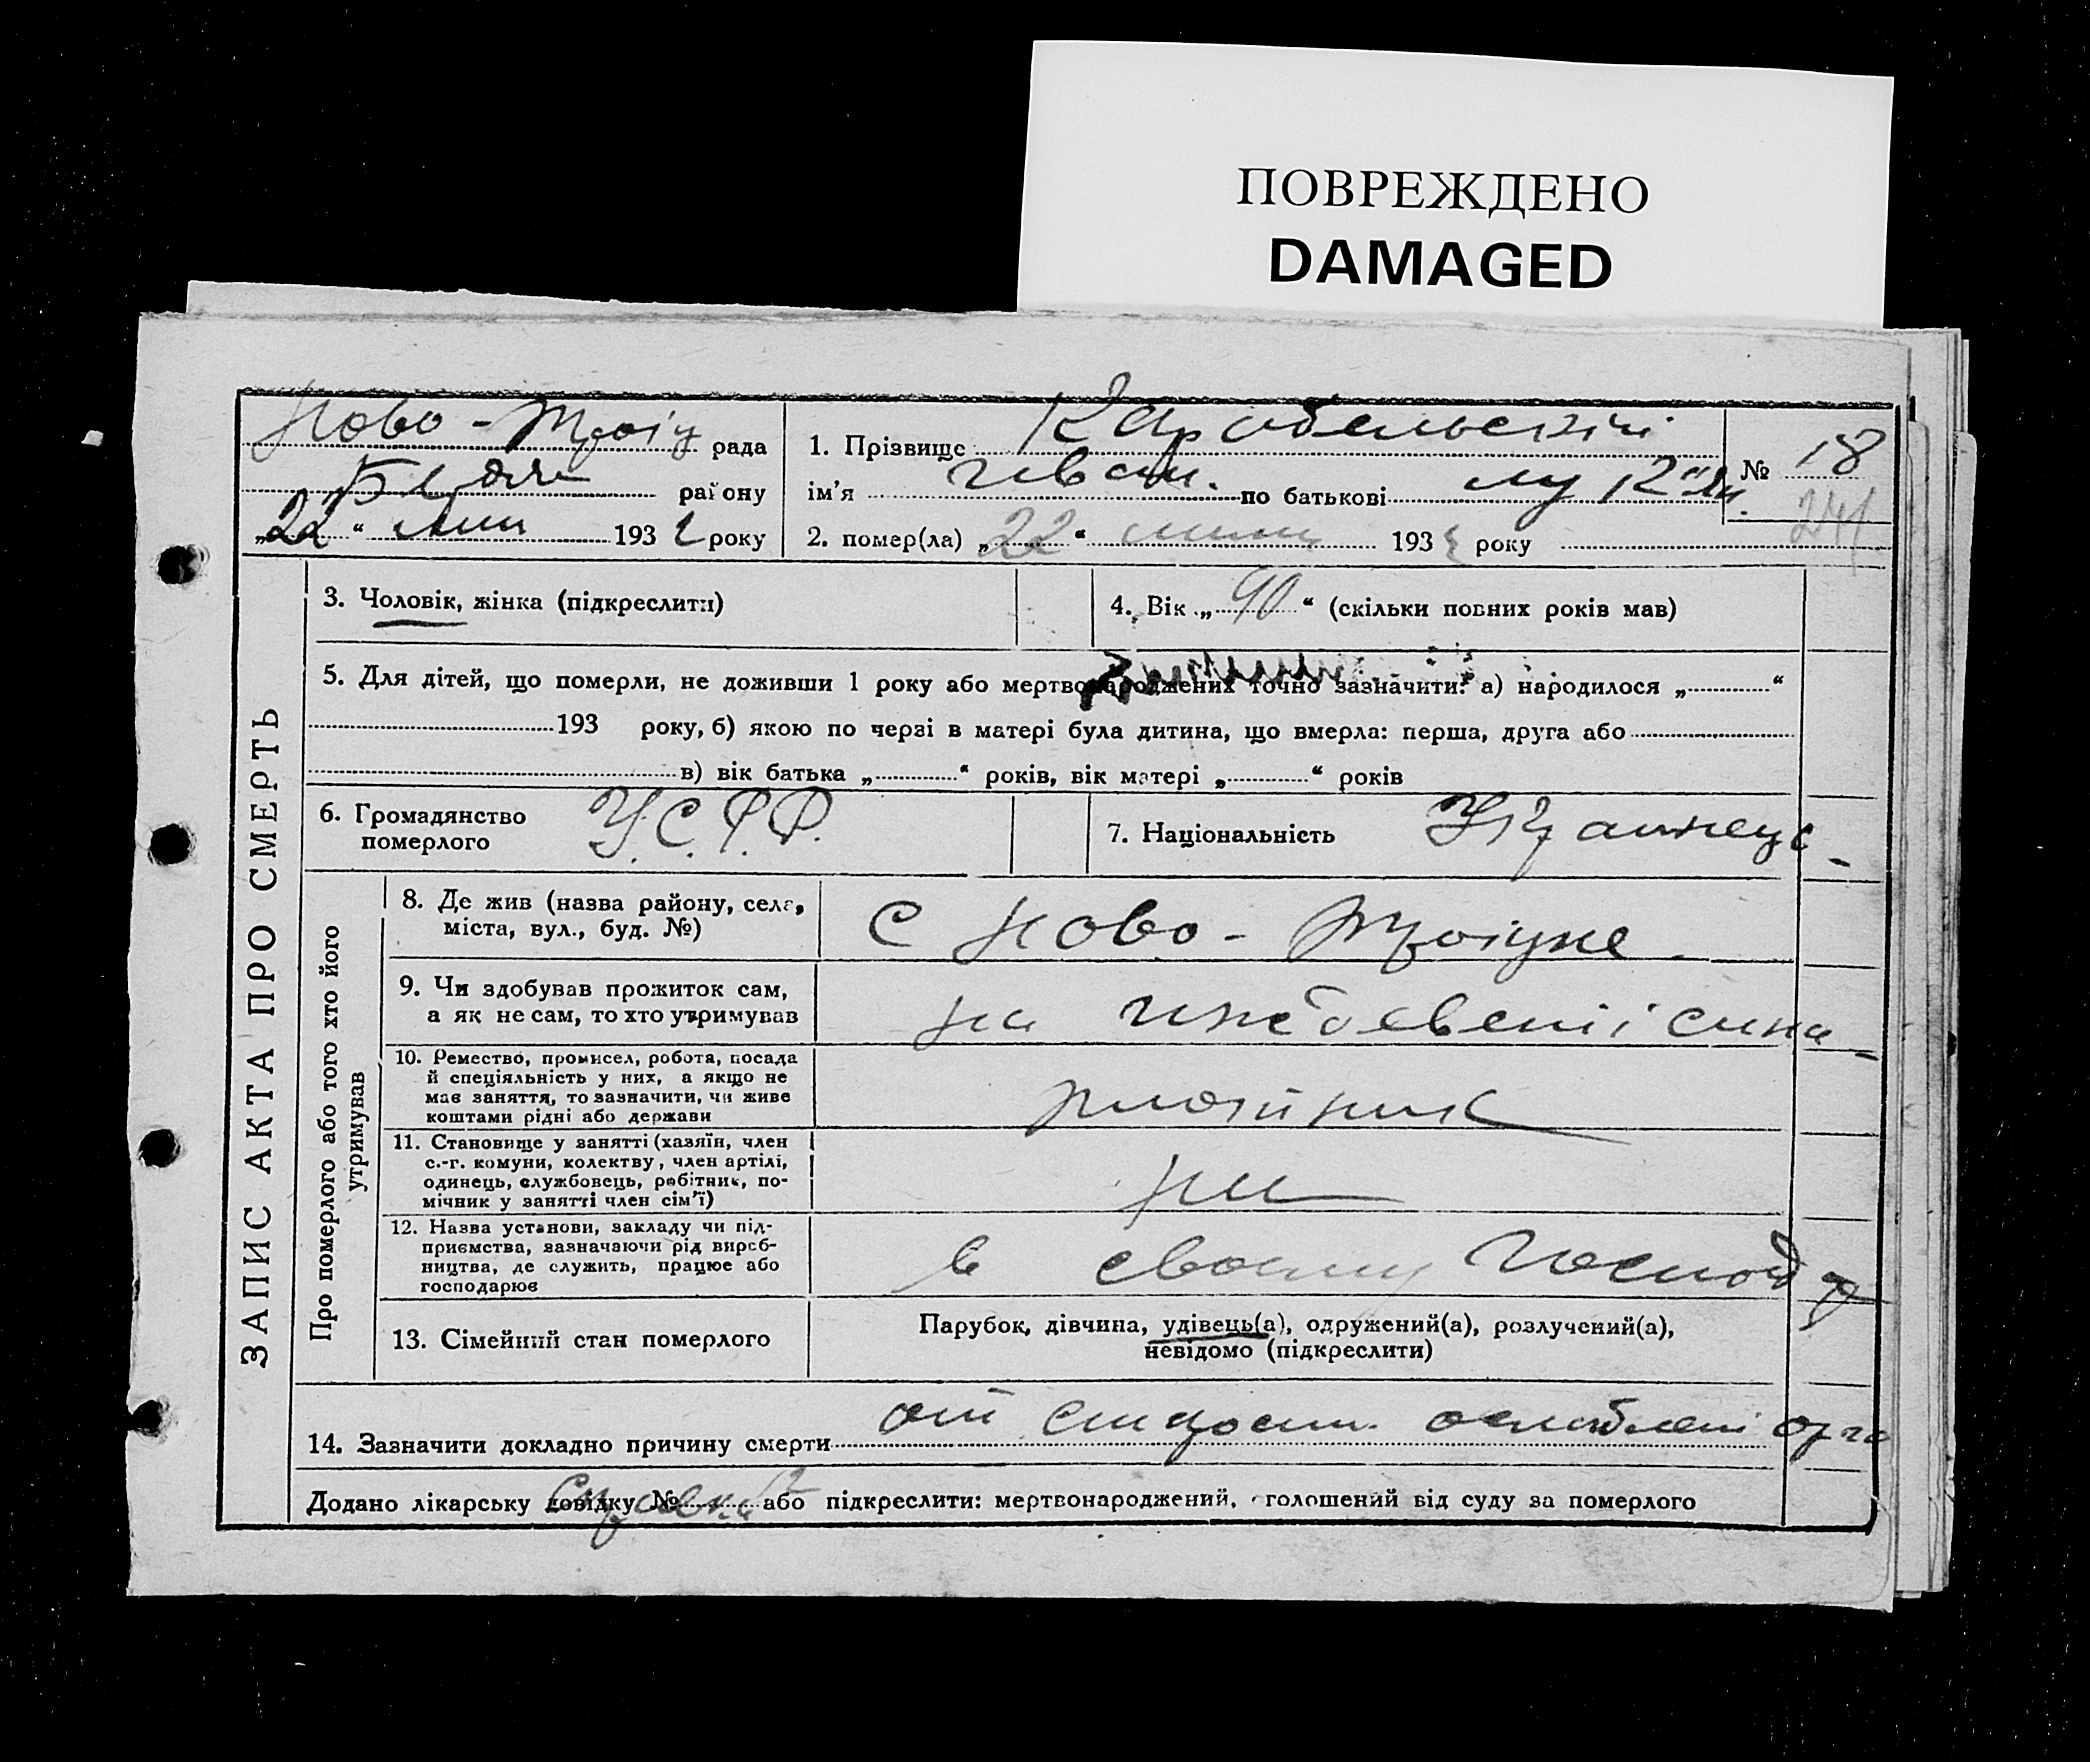 ПОВРЕЖДЕНО
DAMAGED
Ново-Троіц рада
району
„22“ 193 року
1. Прізвище Каробельскій № 18
ім'я Іван. по батькові
2. помер(ла) „22“ 193 року
ЗАПИС АКТА ПРО СМЕРТЬ
3. Чоловік, жінка (підкреслити)
4. Вік „90“ (скільки повних років мав)
5. Для дітей, що померли, не доживши 1 року або мертвонароджених точно зазначити: а) народилося „ “
193 року, б) якою по черзі в матері була дитина, що вмерла: перша, друга або
в) вік батька „ “ років, вік матері „ “ років
6. Громадянство
померлого У.С.Р.Р.
7. Національність Українец
Про померлого або того хто його
утримував
8. Де жив (назва району, села,
міста, вул., буд. №)
с Ново-Троіцке
9. Чи здобував прожиток сам,
а як не сам, то хто утримував
на иждевені сина
10. Ремество, промисел, робота, посада
й спеціяльність у них, а якщо не
має заняття, то зазначити, чи живе
коштами рідні або держави
11. Становище у занятті (хазяїн, член
с.-г. комуни, колектву, член артілі,
одинець, службовець, робітник, по-
мічник у занятті член сім'ї)
12. Назва установи, закладу чи під-
приємства, зазначаючи рід вироб-
ництва, де служить, працює або
господарює
в своему господ
13. Сімейний стан померлого
Парубок, дівчина, удівець(а), одружений(а), розлучений(а),
невідомо (підкреслити)
14. Зазначити докладно причину смерти от старост. ослаблені орга
Додано лікарську довідку № або підкреслити: мертвонароджений, оголошений від суду за померлого